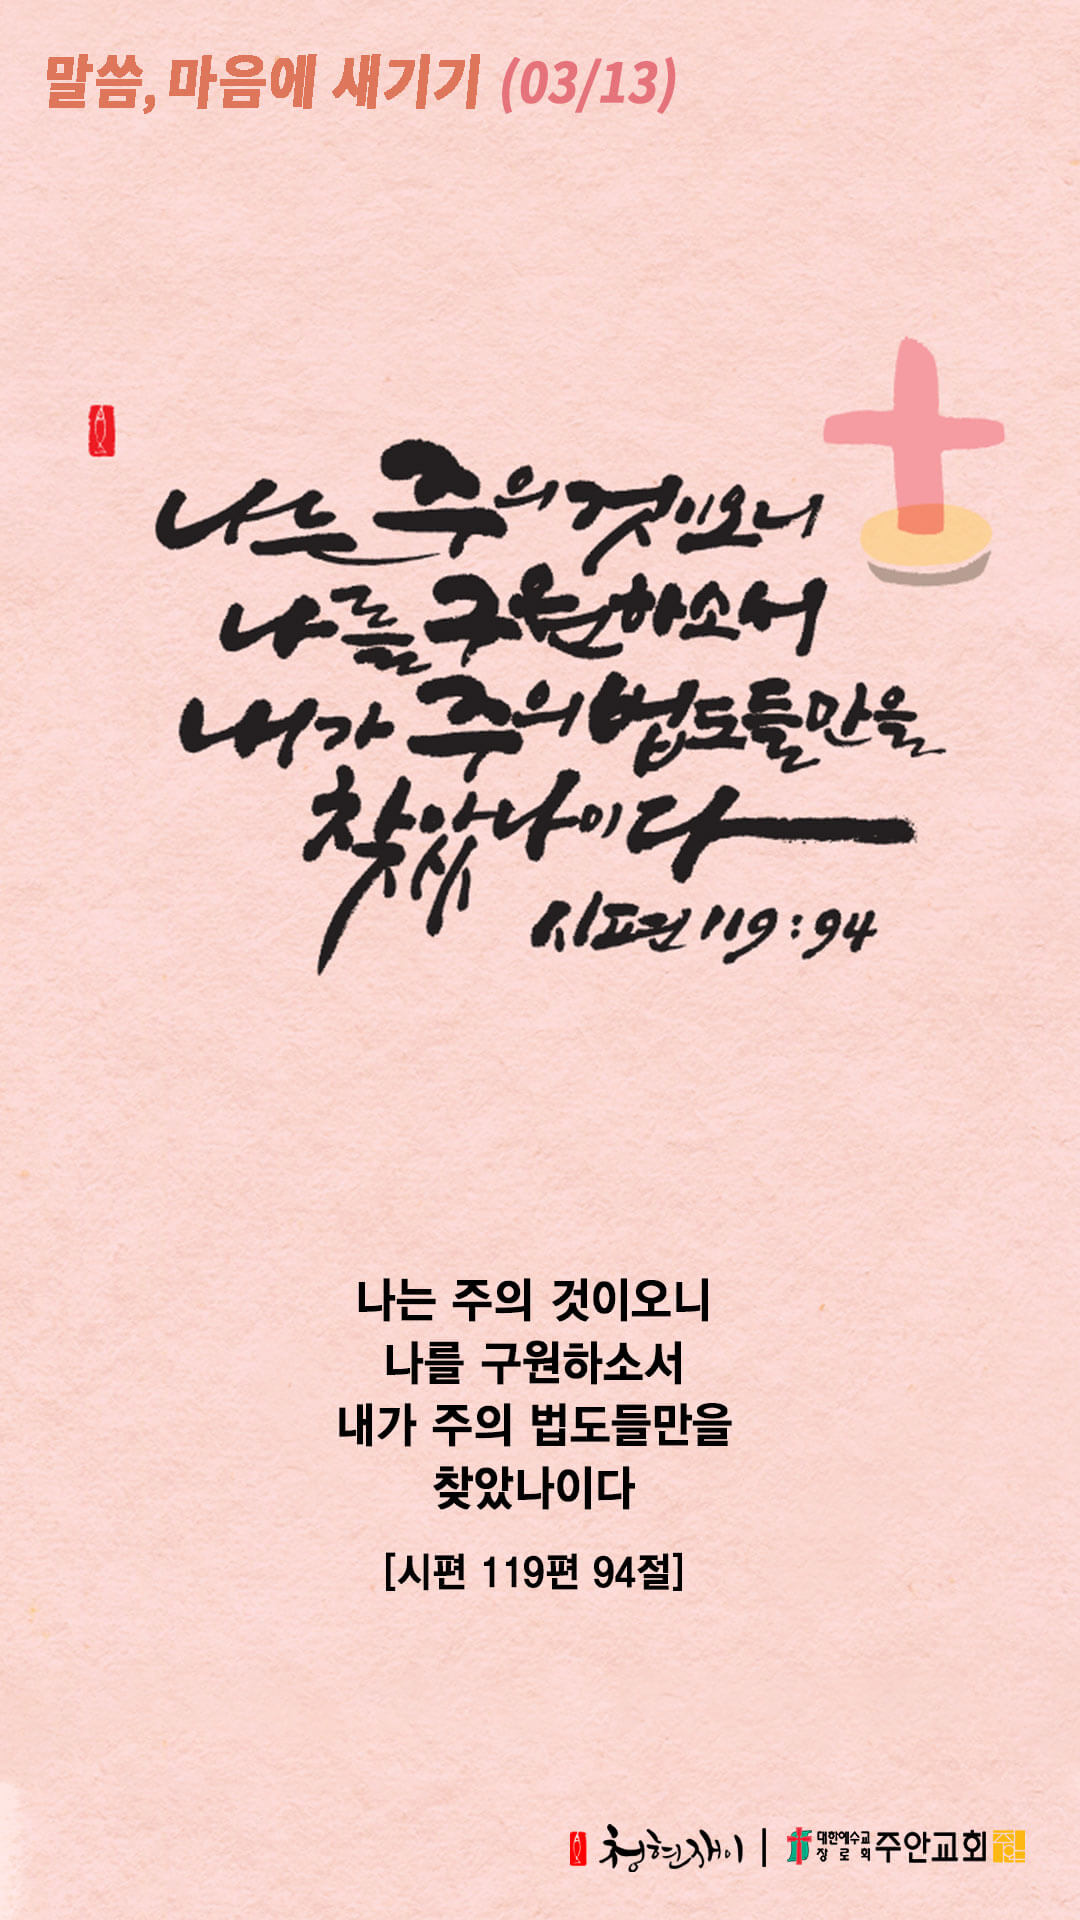 말씀, 마음에 새기기 (03/13)
나는 주의 것이오니
나를 구원하소서
내가 주의 법도들만을
찾았나이다
시편 119:94
나는 주의 것이오니
나를 구원하소서
내가 주의 법도들만을
찾았나이다
[시편 119편 94절]
청현재이 | 대한예수교 장로회 주안교회